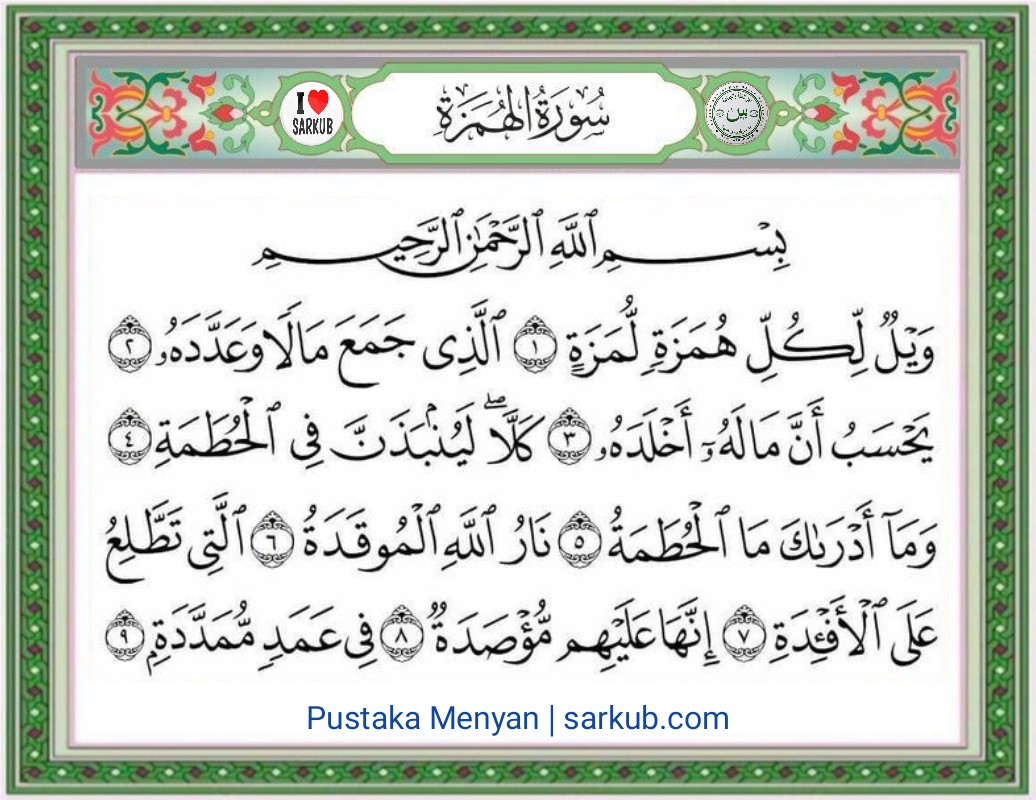 I ❤ SARKUB
سُورَةُ الهُمَزَةِ
بِسْمِ ٱللَّهِ ٱلرَّحْمَٰنِ ٱلرَّحِيمِ
وَيْلٌ لِّكُلِّ هُمَزَةٍ لُّمَزَةٍ ١ ٱلَّذِى جَمَعَ مَالًا وَعَدَّدَهُۥ ٢
يَحْسَبُ أَنَّ مَالَهُۥٓ أَخْلَدَهُۥ ٣ كَلَّا ۖ لَيُنۢبَذَنَّ فِى ٱلْحُطَمَةِ ٤
وَمَآ أَدْرَىٰكَ مَا ٱلْحُطَمَةُ ٥ نَارُ ٱللَّهِ ٱلْمُوقَدَةُ ٦ ٱلَّتِى تَطَّلِعُ
عَلَى ٱلْأَفْـِٔدَةِ ٧ إِنَّهَا عَلَيْهِم مُّؤْصَدَةٌ ٨ فِى عَمَدٍ مُّمَدَّدَةٍۭ ٩
Pustaka Menyan | sarkub.com